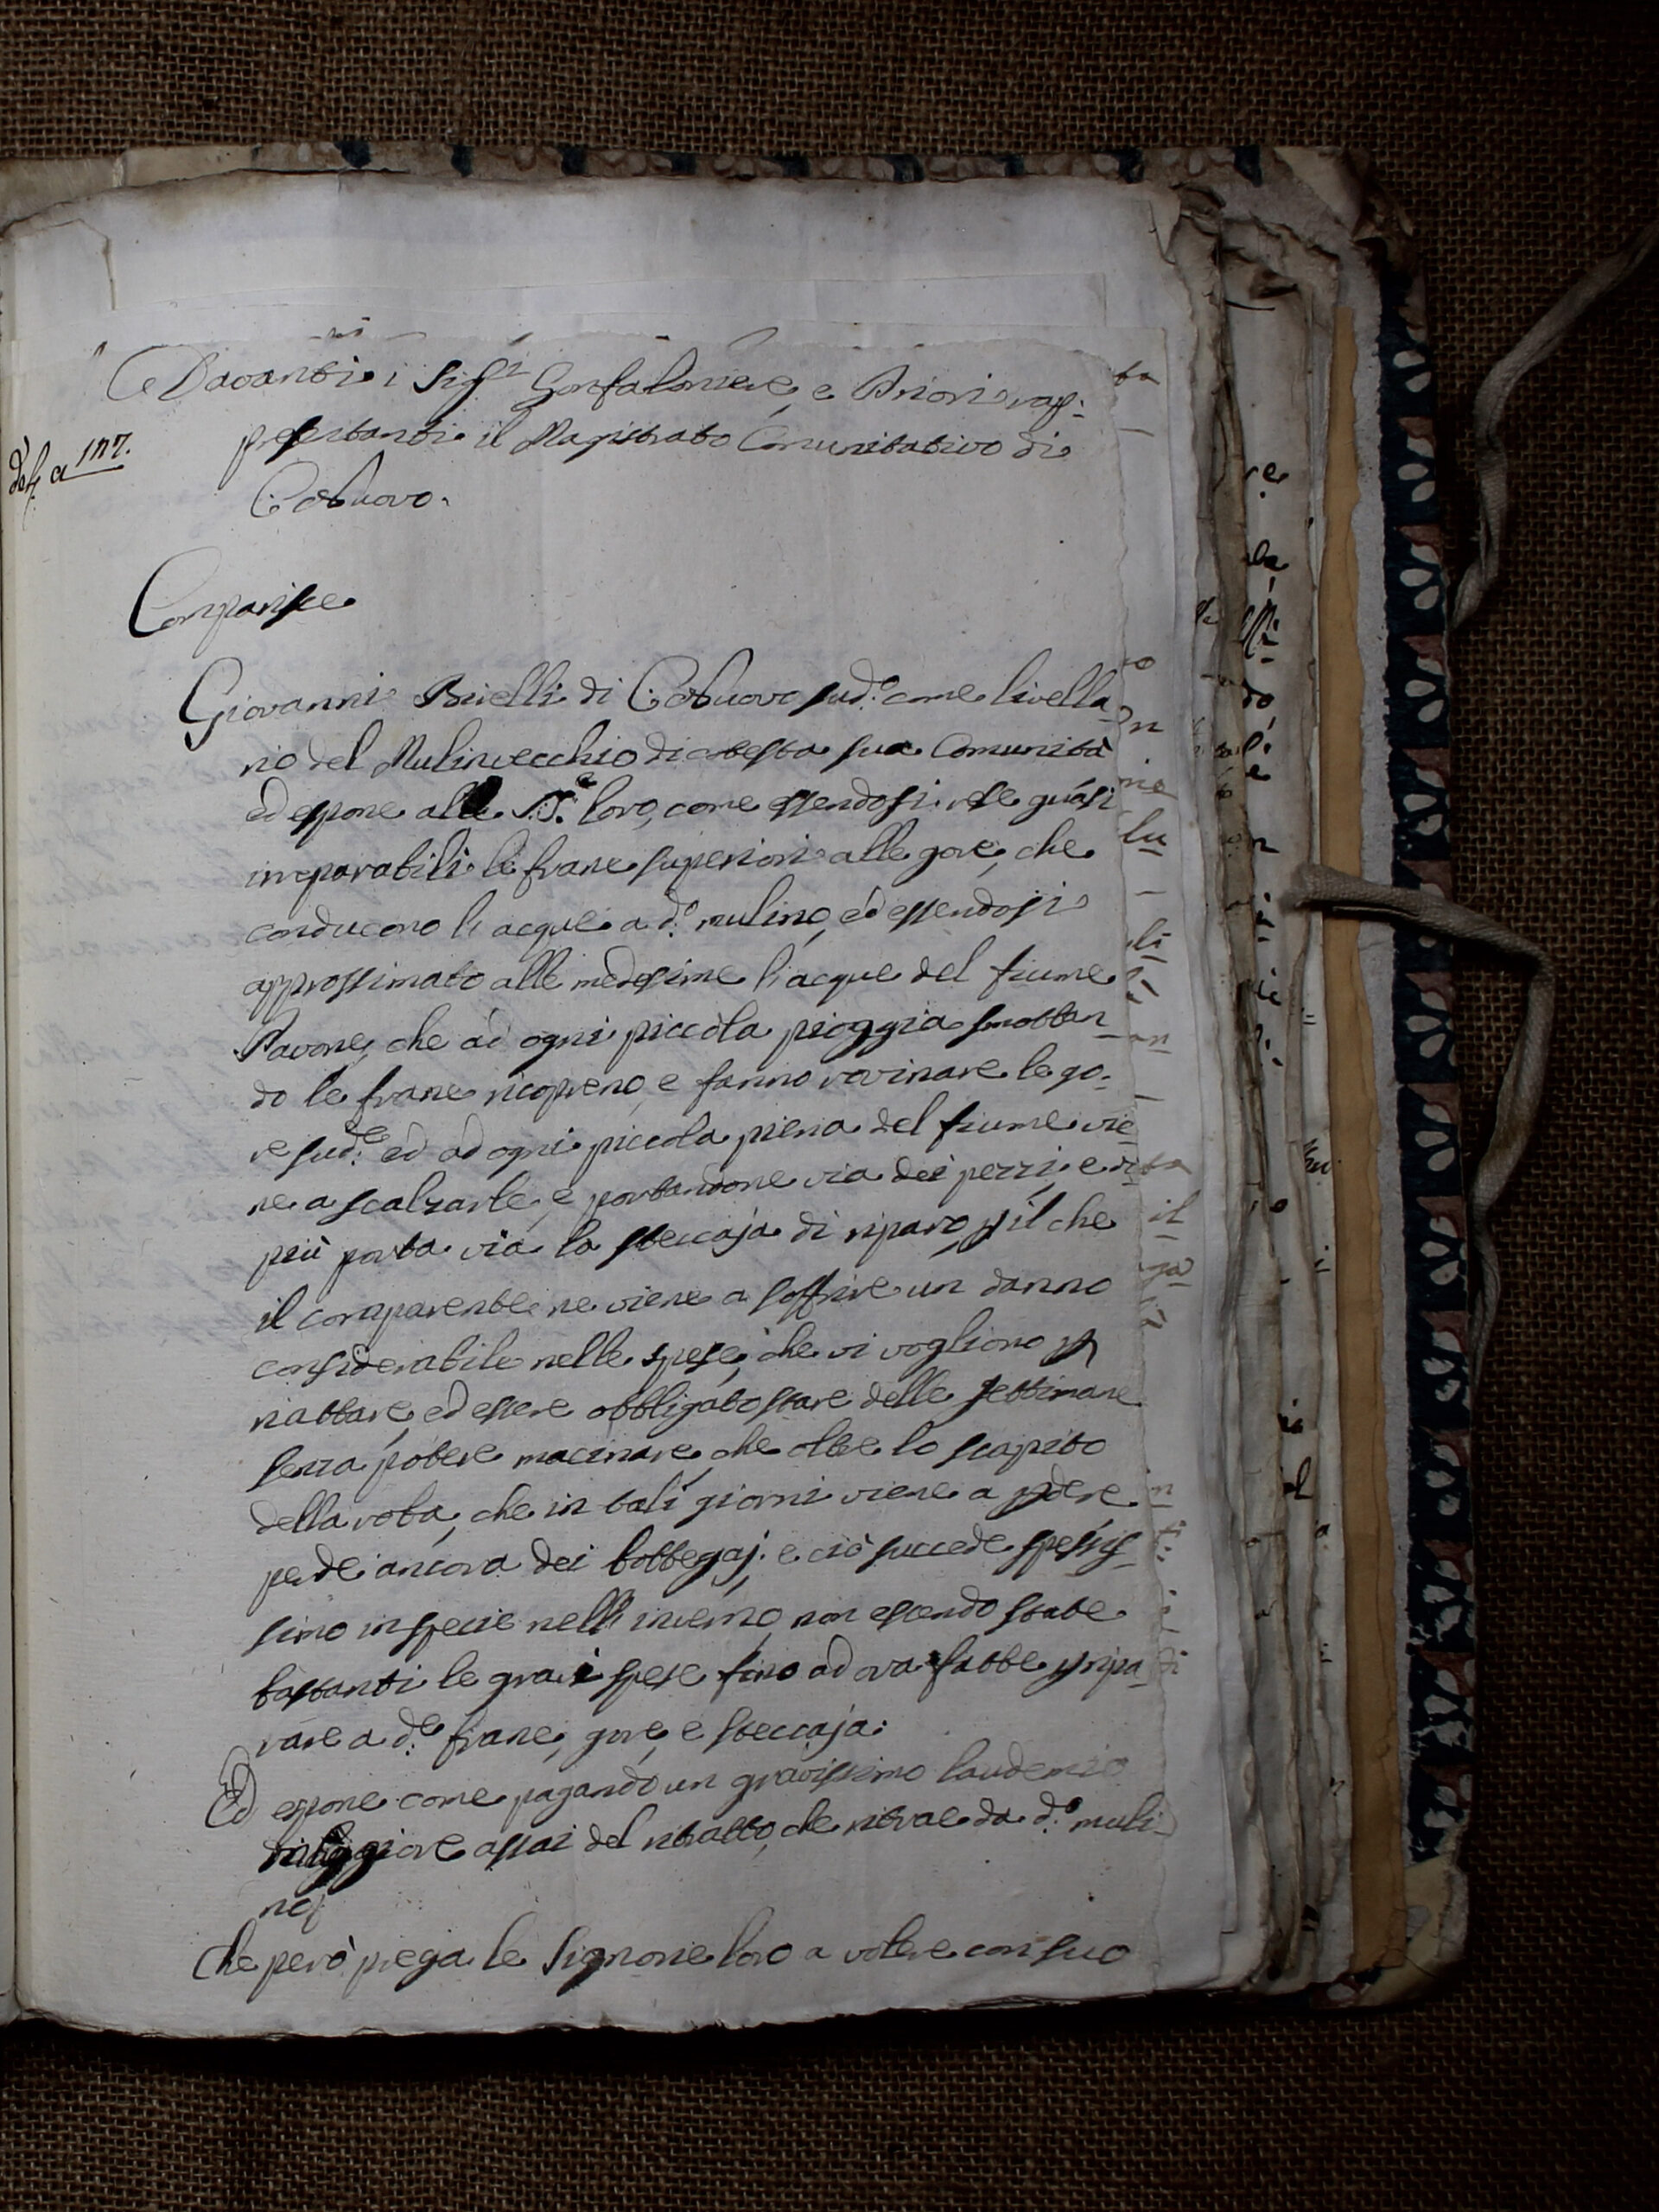 Davanti i Sigg.ri Gonfaloniere, e Priori rap:
presentanti il Magistrato Comunitativo di
def. a 117.
C.nuovo.
Comparisce
Giovanni Bucelli di C.nuovo sud.o come livella
rio del Mulinvecchio di cotesta sua Comunità
ed espone alle S.S.e loro, come essendosi rese quasi
irreparabili le frane superiori alle gore, che
conducono l'acque a d.o mulino, ed essendosi
approssimato alle medesime l'acque del fiume
Pavone, che ad ogni piccola pioggia smottan
do le frane ricopreno, e fanno rovinare le go
re sud.e ed ad ogni piccola piena del fiume vie
ne a scalzarle, e portandone via dei pezzi, e di
più porta via la steccaja di riparo, p il che
il comparente ne viene a soffrire un danno
considerabile nelle spese, che vi vogliono p
riattare, ed essere obbligato stare delle settimane
senza potere macinare, che oltre lo scapito
della roba, che in tali giorni viene a pdere
perde ancora dei bottegaj; e ciò succede spessis
simo in specie nell'inverno, non essendo state
bastanti le gravi spese fino ad ora fatte p ripa
rare a d.e frane, gore, e steccaja:
Ed espone come pagando un gravissimo laudemio
maggiore assai del ritratto, che ritrae da d.o muli
no
Che però prega le Signorie loro a volere con suo